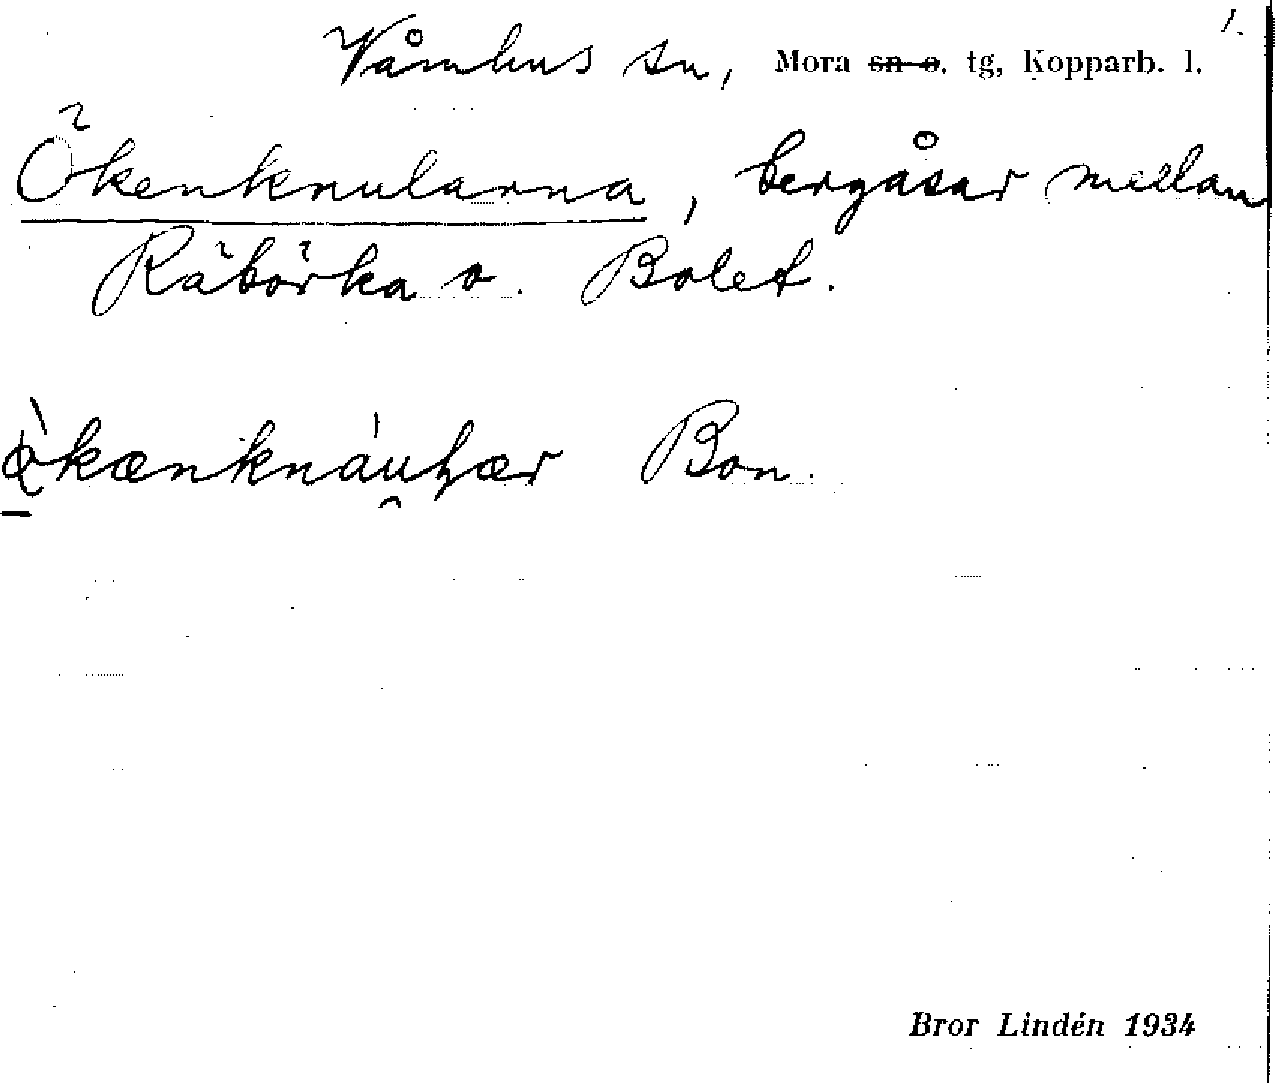 1.
Våmhus sn, Mora sn o. tg, Kopparb. l.
Ökenknularna, bergåsar mellan
Räbörka o. Bolet.
Bon.
Bror Lindén 1934